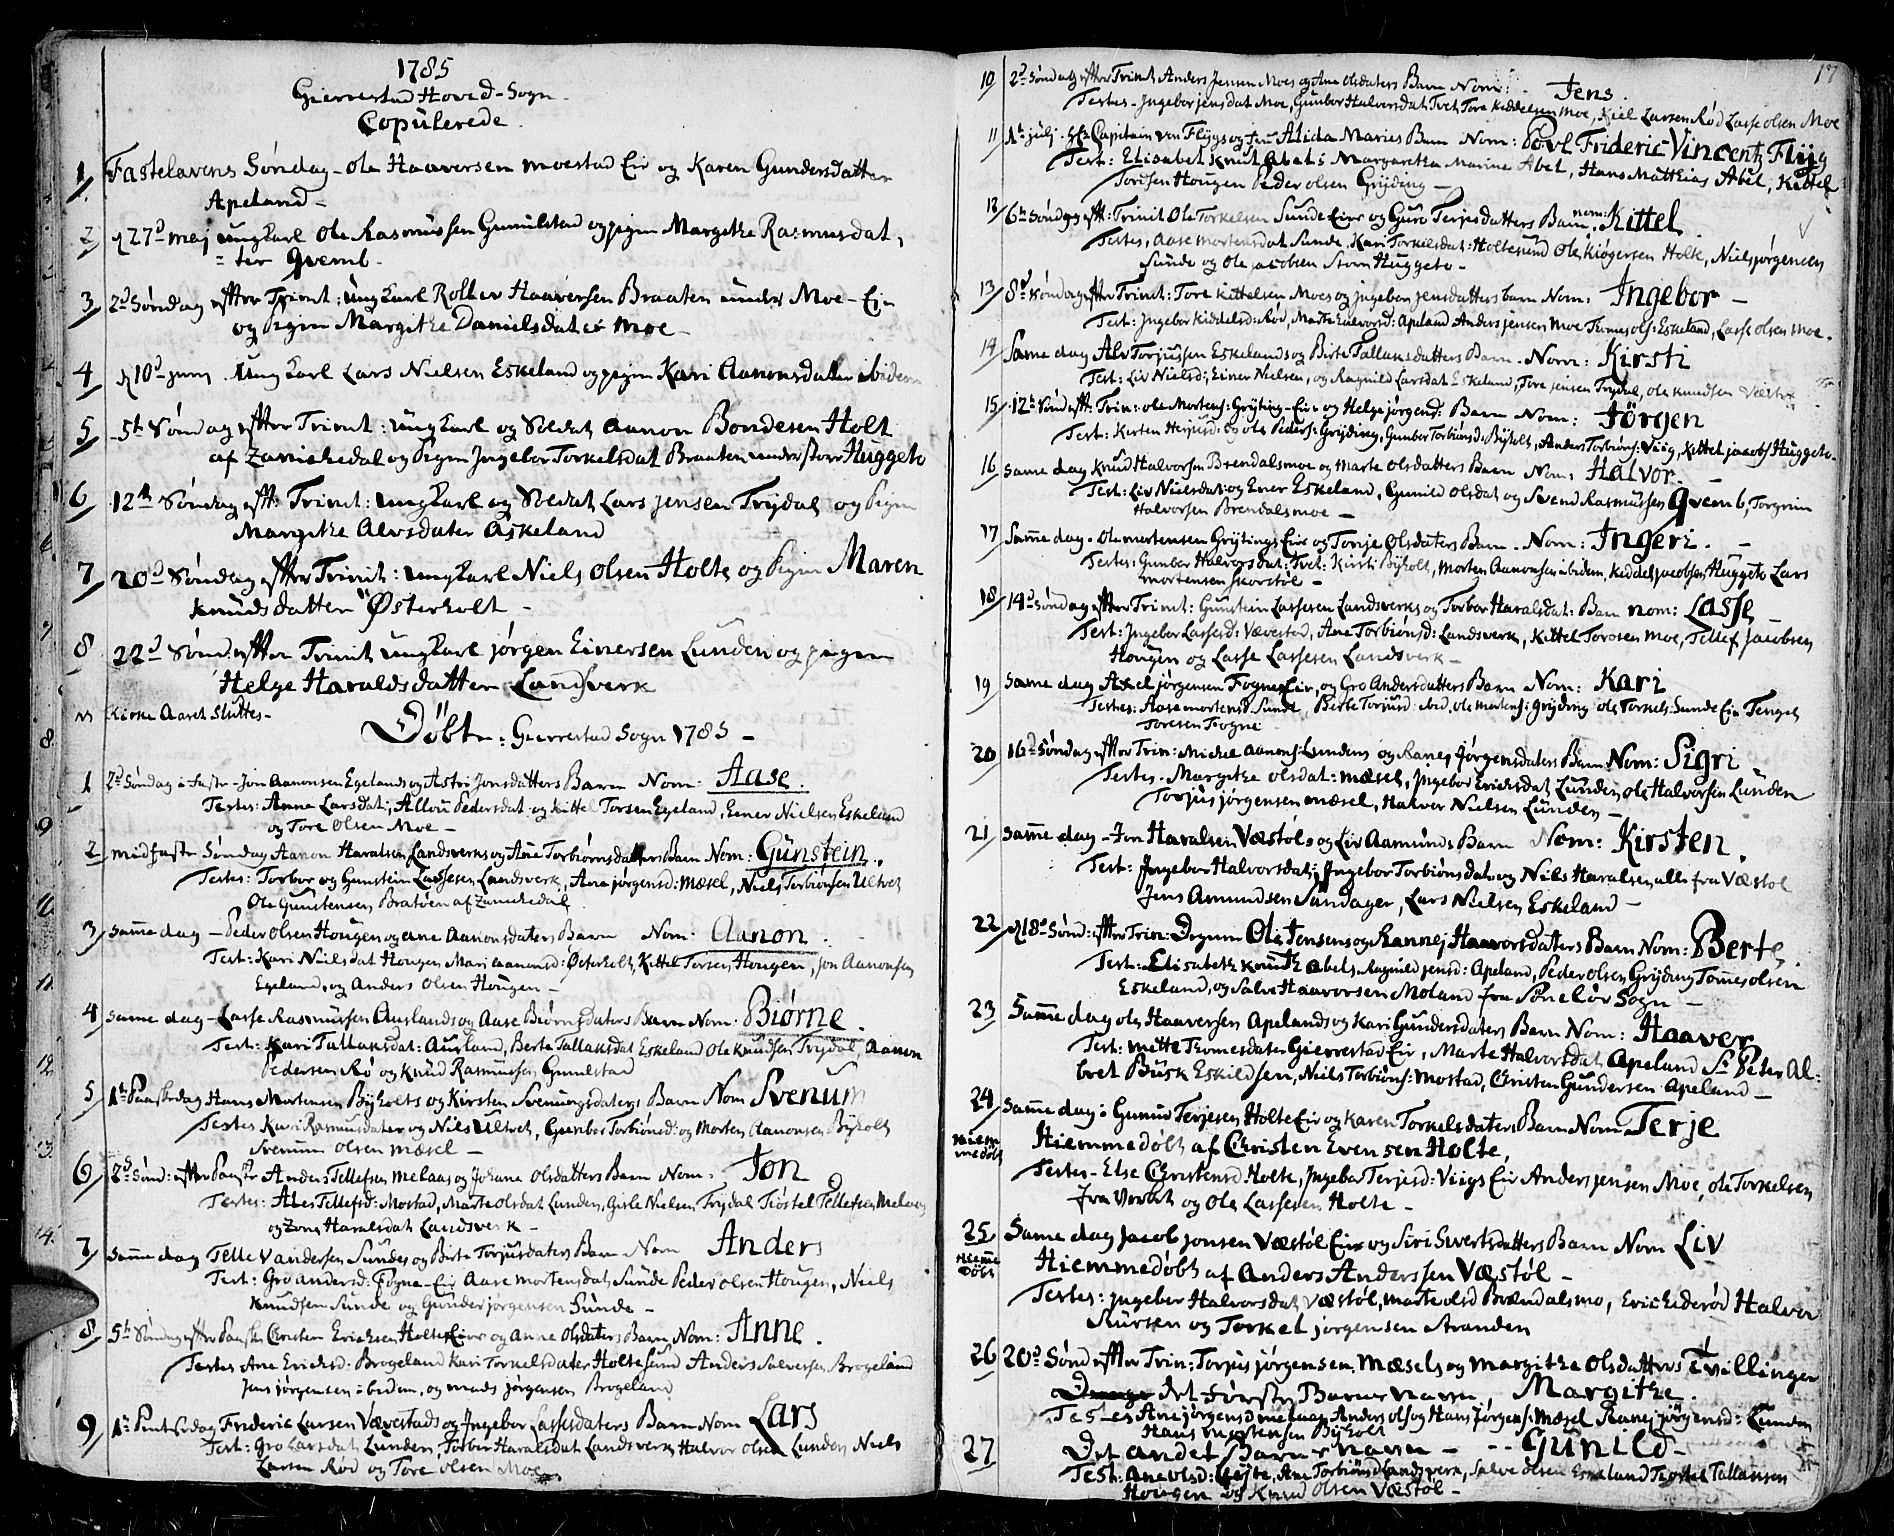 1785
Gierrestad Hoved-Sogn
Copulerede.
1/ Fastelavens Søndag - Ole Haaversen Moestad Eir og Karen Gundersdatter
Apeland -
2/ d 27d Maj ungkarl Ole Rasmussen Gumilstad og pigen Margithe Rasmusdat,
= ter Qvemb -
3/ 2d Søndag efter Trinit: ungkarl Rollev Haaversen Braaten under Moe - Eir
og Pigen Margithe Danielsdater Moe -
4/ d 10d Junij Ungkarl Lars Nielsen Eskeland og pigen Kari Aanonsdatter ibidem
5/ 5th Søndag efter Trinit: ungkarl og Soldat Aanon Bondesen Holt
af Zannichedal og Pigen Ingebor Torkelsdat Braaten under store Huggeto
6/ 12th Søndag efft. Trinit: ungkarl og Soldat Lars Jensen Trydal og Pigen
Margithe Alvsdater Askeland
7/ 20d Søndag efter Trinit: ungkarl Niels Olsen Holte og Pigen Maren
Knudsdatter Østerholt -
8 22d Sønd: efter Trinit ungkarl Jørgen Einersen Lunden og pigen
Helge Haraldsdatter Landsverk
Kirke Aaret Sluttes -
Døbte: Gierrestad Sogn 1785 -
1 2d Søndag i Faste - Jon Aanonsen Egelands og Astri Jonsdatters Barn Nom: Aase.
Testes: Anne Larsdat, Allou Pedersdat og Kittel Torsen Egeland, Einer Nielsen Eskeland
og Tore Olsen Moe -
2 Midfaste Søndag Aanon Haralsen Landsverks og Ane Torbiørnsdatters Barn Nom: Gunstein.
Testes: Torbor og Gunstein Lassesen Landsverk, Ane Jørgensd: Mæsel, Niels Torbiønsen Ultvet
Ole Gunstensen Bratøen af Zannichedal
3/ samme dag - Peder Olsen Hougen og Ane Aanonsdaters Barn Nom: Aanon.
Test: Kari Nielsdat Hougen, Mari Aanonsd: Østerholt, Kittel Torsen Hougen, Jon Aanonsen
Egeland, og Anders Olsen Hougen -
4 samme dag - Lasse Rasmussen Aurlands og Aase Biørnsdaters Barn Nom: Biørne.
Test: Kari Tallaksdat: Aurland, Berte Tallaksdat Eskeland Ole Knudsen Trydal, Aanon
Pedersen Rø og Knud Rasmussen Gumilstad
5 1te Paaskedag Hans Mortensen Byholts og Kirsten Svenungsdaters Barn Nom Svenum
Testes Kari Rasmusdater og Niels Ultvet, Gunbor Torbiønsd: og Morten Aanonsen Byholt
Svenum Olsen Mæsel -
6/ 2d Sønd: efter Paaske Anders Tellefsen Melaas og Johane Olsdatters Barn Nom. Jon
Testes: Aber Tellefsd: Mostad, Marte Olsdat Lunden, Gisle Nielsen, Trydal Tiøstel Tellefsen Melaas
og Zone Haralsdat Landsverk -
7/ samme dag Tellev Andersen Sundes og Berte Torjusdaters Barn Nom Anders
Test: Gro Andersd: Fogne - Eir Aase Mortensdat Sunde Peder Olsen Hougen, Niels
Knudsen Sunde og Gunder Jørgensen Sunde -
8/ 5th Søndag efter Paaske Christen Erichsen Holte Eier og Anne Olsdaters Barn Nom: Anne.
Testes Ane Ericksd: Brogeland Kari Torkelsdater Holtesund Anders Salvesen Brogeland
Jens Jørgensen ibidem, og Mads Jørgensen Brogeland
9/ 1te Pintsedag Frideric Larsen Vævestads og Ingebor Lassesdaters Barn Nom Lars
Test: Gro Larsdat Lunden, Torbor Haralsdat Landsverk Halvor Olsen Lunden Niels
Larsen Rød og Tore Olsen Moe
17
10 2d Søndag efter Trinit Anders Jensen Moes og Ane Olsdaters Barn Nom: Jens.
Testes - Ingebor Jensdat Moe, Gunbor Halvorsdat Tvet Tore Kiddelsen Moe, Niel Larsen Rød Lasse Olsen Moe
11 1te Julj. Hr. Capitain von Flygs og Fru Alida Maries Barn Nom: Povl Frideric Vincentz Flyg
Test: Elisabet Knut Abel: Margaretha Marine Abel, Hans Matthias Abel, Kittel
Tordsen Hougen Peder Olsen Gryding -
12 6te Søndag efft: Trinit Ole Torkelsen Sunde Eier og Guro Terjesdatters Barn nom: Kittel.
Testes, Aase Mortensdat Sunde, Kari Torkelsdat: Holtesund Ole Kiøgersen Holt, Niels Jørgensen
Sunde og Ole Jacobsen Store Huggeto -
13/ 8d Søndag efter Trinit: Tore Kittelsen Moes og Ingebor Jensdatters barn Nom: Ingebor -
Test: Ingebor Kiddelsd: Rød, Marte Halvorsd: Apeland Anders Jensen Moe Tomes Ols: Eskeland, Lasse Olsen Moe.
14 Samme dag Alv Torjussen Eskelands og Birte Tallaksdatters Barn. Nom: Kirsti
Test: Liv Nielsd; Einer Nielsen, og Ragnild Larsdat Eskeland, Tore Jensen Trydal, Ole Knudsen Væstøl
15/ 12te Sønd efft. Trin: Ole Mortens: Gryting - Eir og Helge Jørgensd: Barn Nom: Jørgen
Test: Kirsten Heljesd: og Ole Peders: Gryding, Gunbor Torbiønsd: Byholt, Anders Torbiøns: Viig, Kittel Jacobs: Huggeto.
16 samme dag Knud Halvorsen Brendalsmoe og Marte Olsdatters Barn Nom: Halvor. -
Test: Liv Nielsdat og Ener Eskeland, Gunild Olsdat og Svend Rasmussen Qvemb, Torgrim
Halvorsen Brendalsmoe -
17 Samme dag. Ole Mortensen Grytings Eir og Tonje Olsdaters Barn. Nom: Ingeri. -
Testes: Gunbor Halvorsdat: Tvet: Kirsti Byholt, Morten Aanonsen ibidem, Kiddel Jacobsen Huggeto Lars
Mortensen Skorstøl -
18/ 14d Søndag efter Trinit: Gunstein Lassesen Landsverks og Torbor Haralsdat: Barn nom: Lasse -
Test: Ingebor Lassesd: Vævestad, Ane Torbiønsd: Landsverk, Kittel Torsen Moe, Tellef Jacobsen
Hougen og Lasse Lassesen Landsverk -
19 samme dag Axel Jørgensen Fogne Eir, og Gro Andersdatters Barn Nom: Kari
Testes: Aase Mortensd Sunde, Berte Torjusd: ibid, Ole Mortens: Gryding Ole Torkels: Sunde Eir Tengel
Toresen Fogne
20 16d Søndag efter Trin: Michel Aanons: Lundens og Ranei Jørgensdaters Barn Nom: Sigri
Testes. Margithe Olsdat: Mæsel, Ingebor Ericksdat Lunden, Ole Halvorsen Lunden
Torjus Jørgensen Mæsel, Halvor Nielsen Lunden -
21 samme dag - Jon Haralsen Væstøls og Liv Aamunds Barn Nom: Kirsten.
Test: Ingebor Halvorsdat; Ingebor Torbiønsdat og Niels Haralsen alle fra Væstøl
Jens Amundsen Søndager, Lars Nielsen Eskeland -
22 d 18d Sønd: efter Trin: Degnen Ole Jensens og Rannej Haavorsdatters Barn Nom: Berte.
Test: Elisabeth Knuth Abels Ragnild Jensd: Apeland, Peder Olsen Gryding Tomes Olsen
Eskeland, og Salve Haavorsen Moland fra Sønelør Sogn -
23 Samme dag Ole Haaversen Apelands og Kari Gundersdaters Barn Nom: Haaver
Test: Mette Tomesdater Gierrestad Eir, Marte Halvorsdat Apeland Sr. Peter Al:
bret Busk Eskildsen, Niels Torbiøns: Mostad, Christen Gundersen Apeland -
24 Samme dag: Gunur Terjesen Holte Eir og Karen Torkelsdaters Barn Nom Terje
Hiem
medøbt Hiemmedøbt af Christen Evensen Holte,
Testes - Else Christensd Holte, Ingebor Terjesd: Viigs Eir Anders Jensen Moe, Ole Torkelsen
fra Vorbt og Ole Lassesen Holte -
25/ Samme dag Jacob Jonsen Væstøl Eir og Siri Sivertsdatters Barn Nom Liv
Hiemme
Døbt Hiemmedøbt af Anders Anderssen Væstøl -
Testes: Ingeber Halvorsdat Væstøl, Marte Olsd Brændalsmo, Erich Ederød Halvor
Siursen og Torkel Jørgensen Stranden
26 20d Sønd efter Trin: Torjus Jørgensen Mæsels og Margithe Olsdatters Tvillinger
det første Barns navn, Margithe.
Testes Ane Jørgensd Melaas Anders Ols og Hans Jørgens: Mæsel Ranej Jørgensd: Lunden
Hans Mortensen Byholt
27 Det andet Barns navn - - - Gunild -
Test: Ane Olsd: Leyte, Ane Torbiønsd Landsverk, Salve Olsen Eskeland Tiøstel Tallaksen
Hougen og Knud Olsen Væstøl -